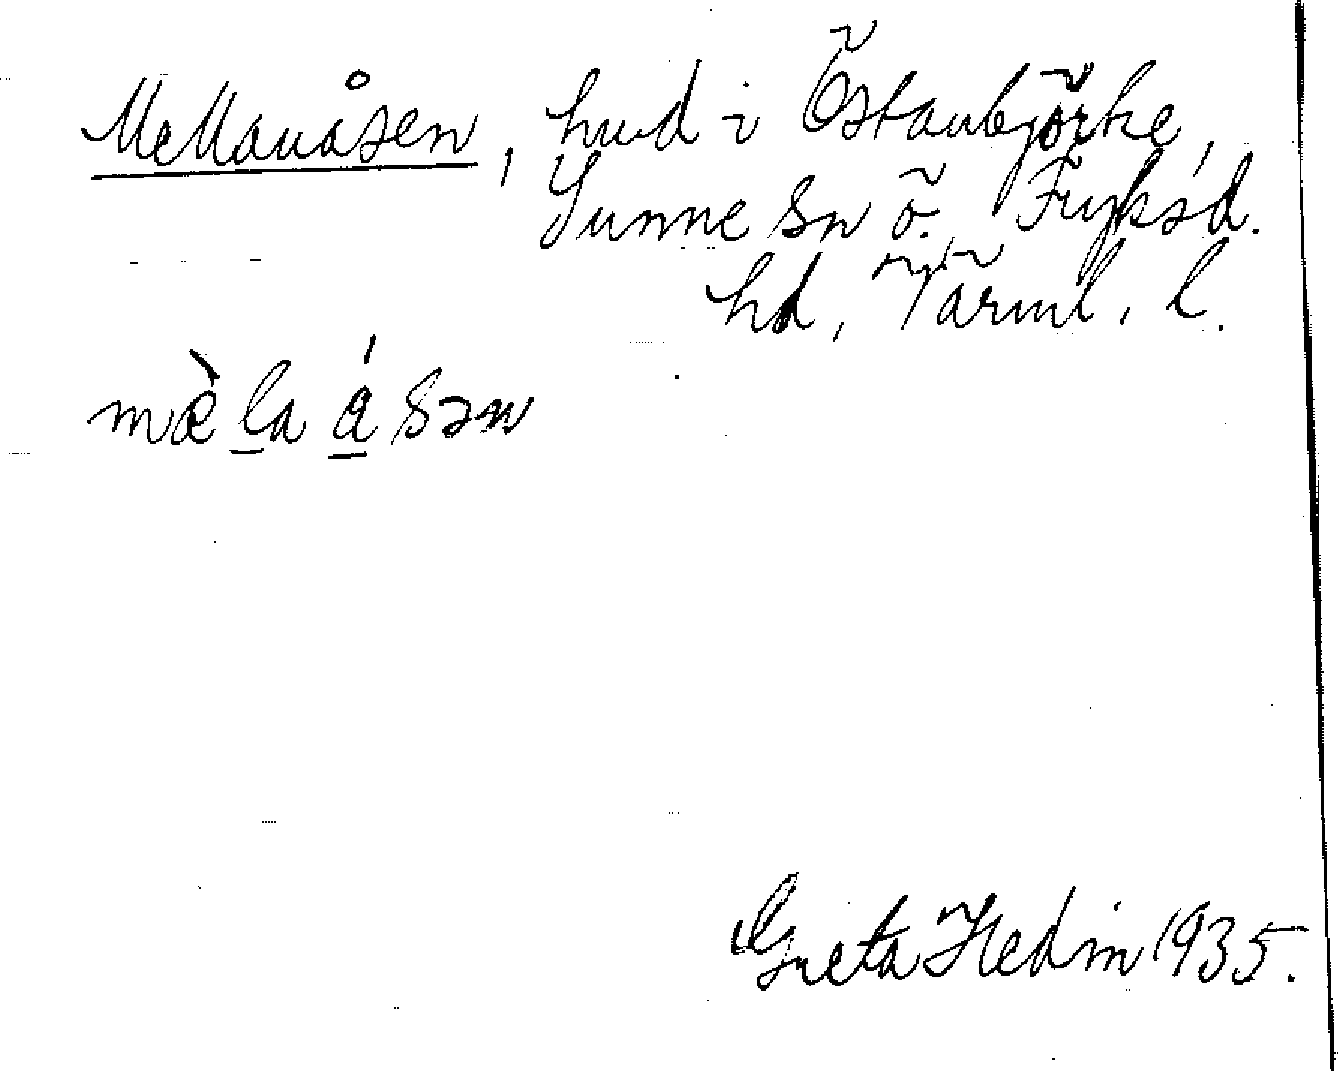 Mellanåsen, hmd i Östanbjörke,
Sunne sn ö. Fryksd.
hd, Värml. l.
mæ̀la ásən
Greta Hedin 1935.